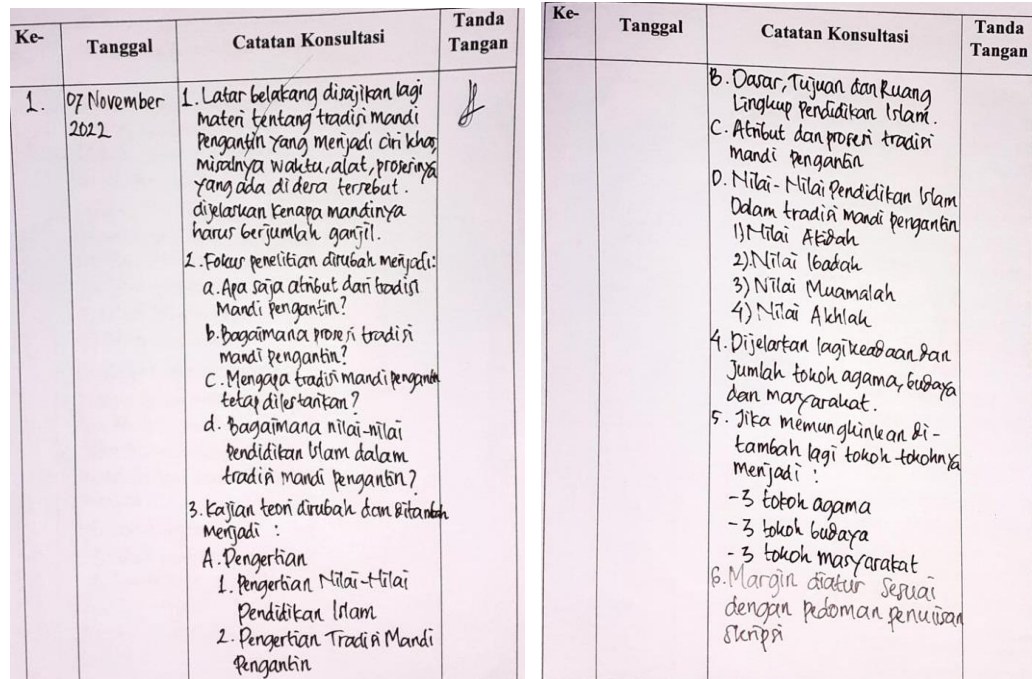 Ke-
Tanggal
Catatan Konsultasi
Tanda
Tangan
1.
07 November
2022
1. Latar belakang disajikan lagi
materi tentang tradisi mandi
Pengantin yang menjadi ciri khas,
misalnya waktu, alat, prosesinya
yang ada di desa tersebut.
dijelaskan kenapa mandinya
harus berjumlah ganjil.
2. Fokus penelitian dirubah menjadi:
a. Apa saja atribut dari tradisi
Mandi pengantin?
b. Bagaimana prosesi tradisi
mandi pengantin?
c. Mengapa tradisi mandi pengantin
tetap dilestarikan?
d. Bagaimana nilai-nilai
Pendidikan Islam dalam
tradisi mandi Pengantin?
3. Kajian teori dirubah dan ditambah
Menjadi :
A. Pengertian
1. Pengertian Nilai-Nilai
Pendidikan Islam
2. Pengertian Tradisi Mandi
Pengantin
Ke-
Tanggal
Catatan Konsultasi
Tanda
Tangan
B. Dasar, Tujuan dan Ruang
Lingkup Pendidikan Islam.
C. Atribut dan prosesi tradisi
mandi Pengantin
D. Nilai-Nilai Pendidikan Islam
Dalam tradisi mandi pengantin
1) Nilai Akidah
2) Nilai Ibadah
3) Nilai Muamalah
4) Nilai Akhlak
4. Dijelaskan lagi keadaan dan
Jumlah tokoh agama, budaya
dan masyarakat.
5. Jika memungkinkan di-
tambah lagi tokoh-tokohnya
menjadi :
-3 tokoh agama
-3 tokoh budaya
-3 tokoh masyarakat
6. Margin diatur sesuai
dengan pedoman penulisan
skripsi